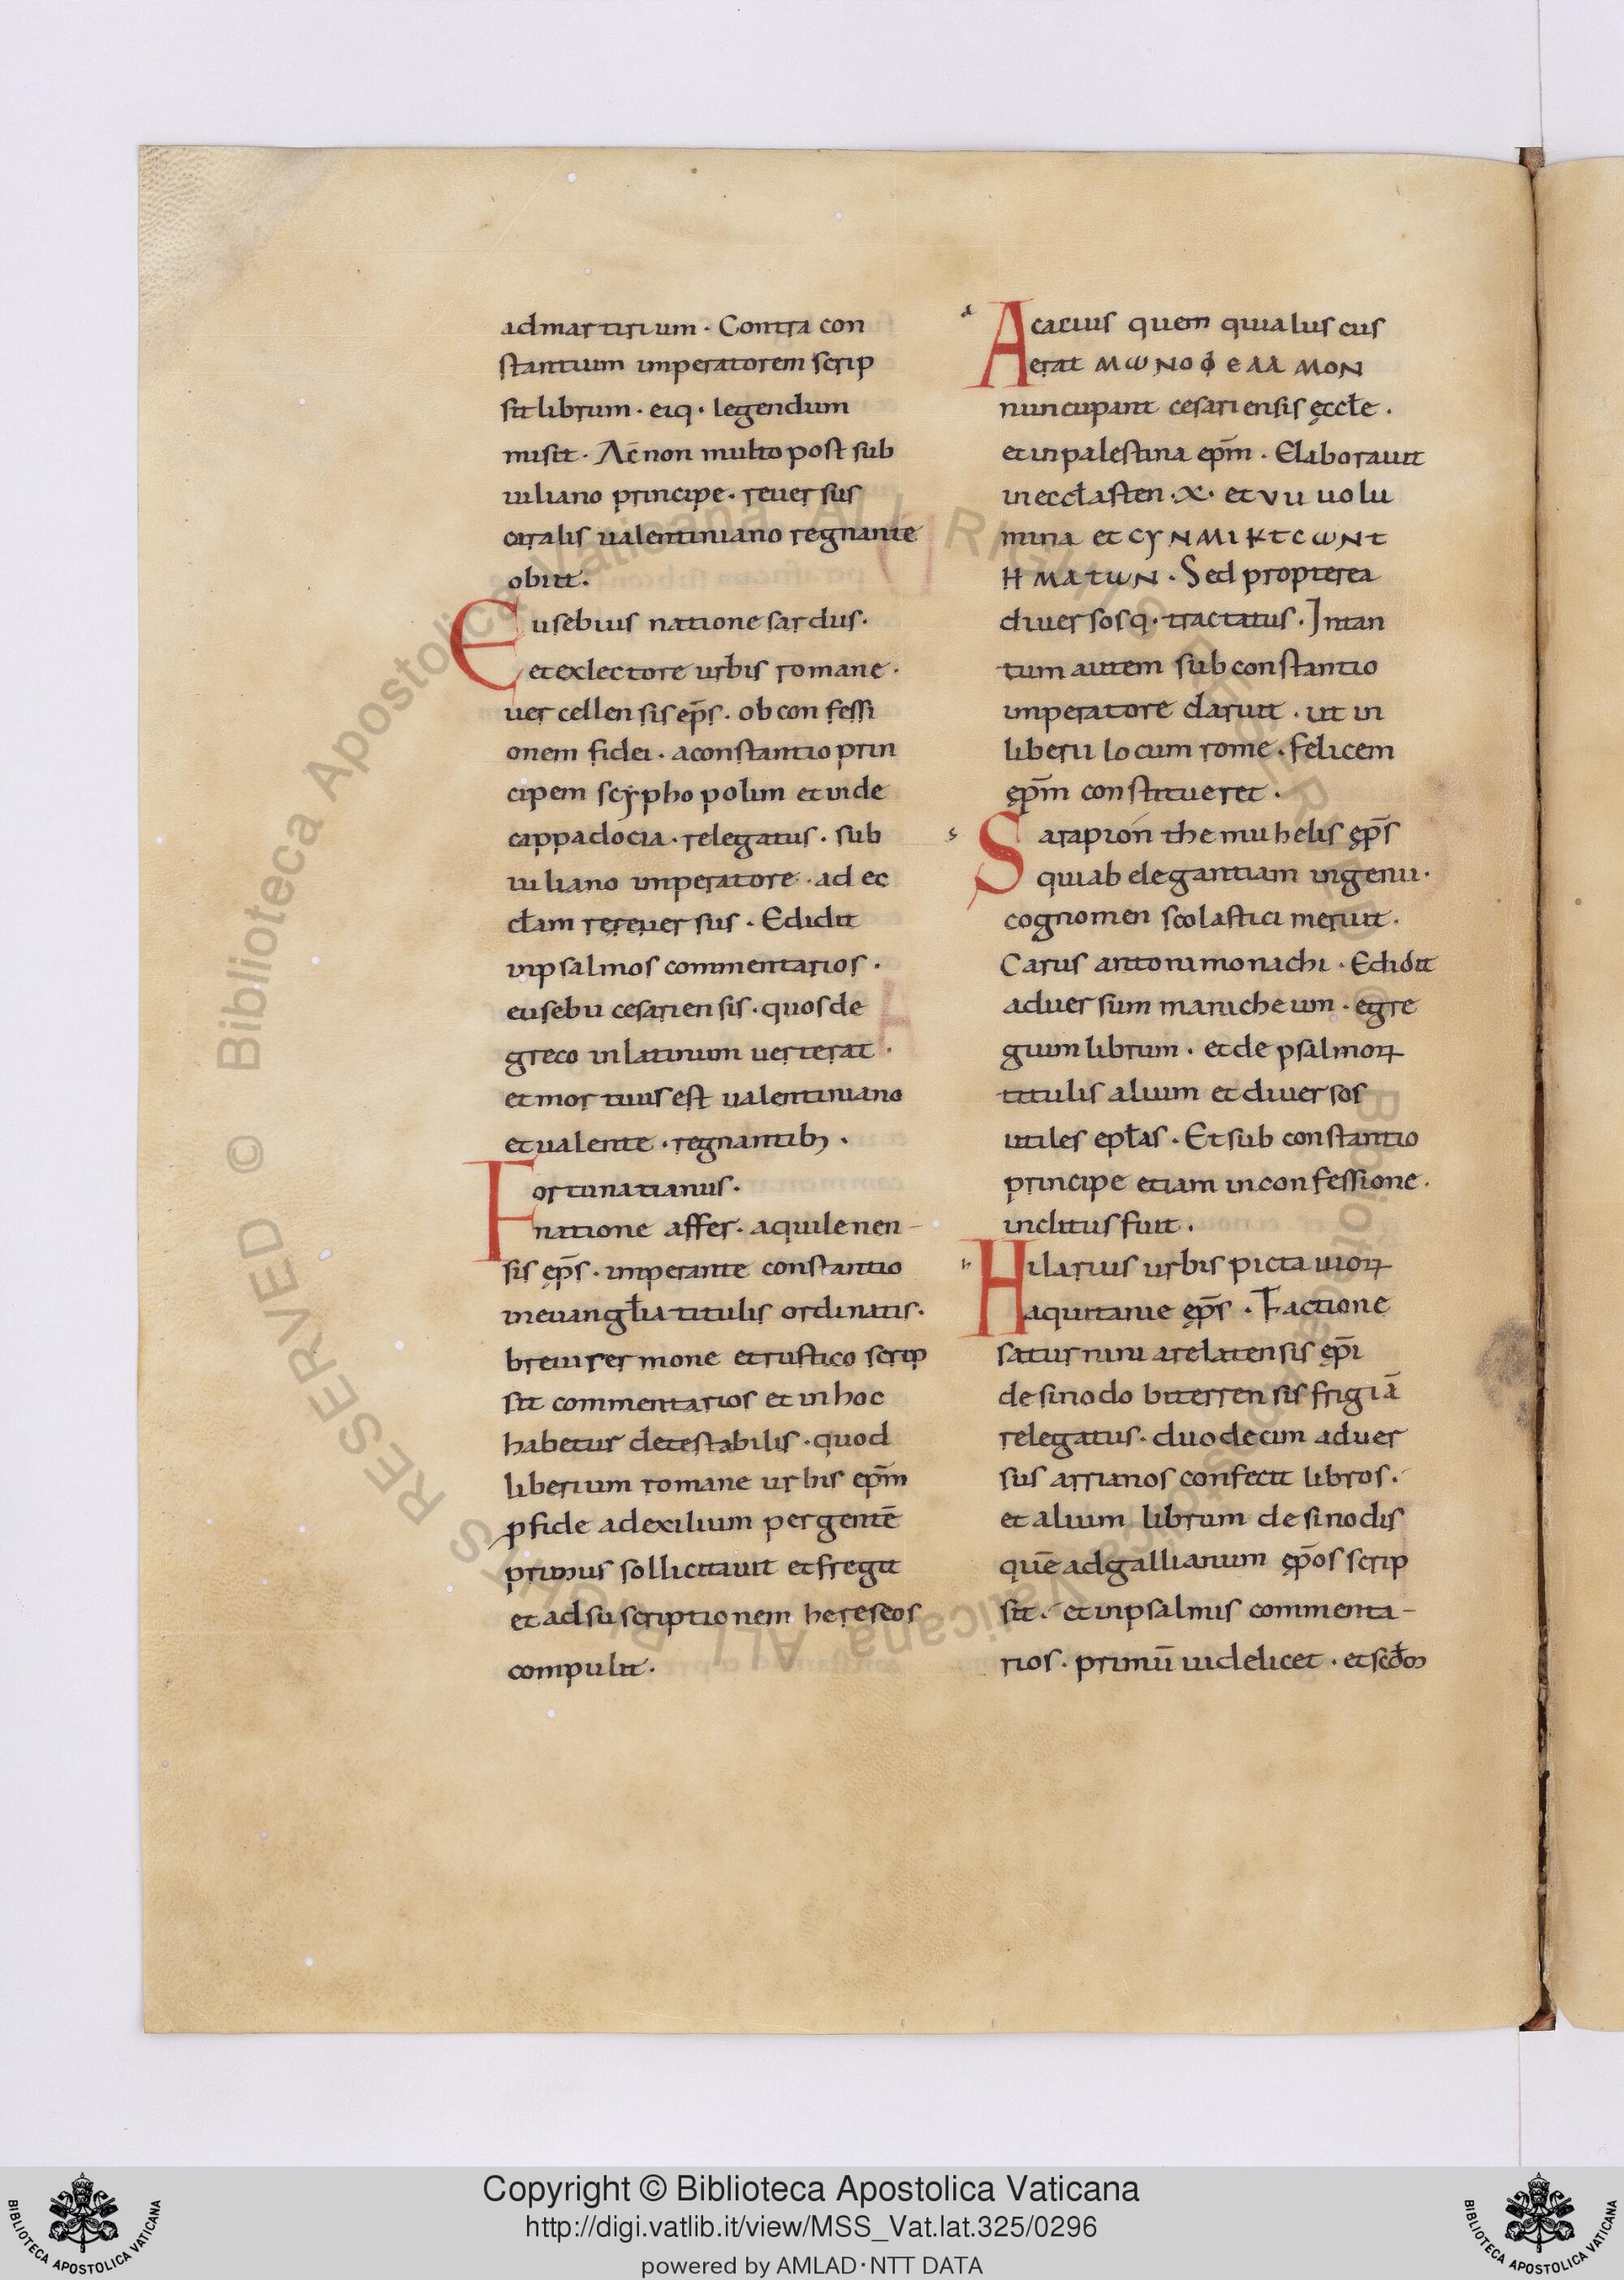 admartirium · Contra con
stantium imperatorem scrip
sit librum · eiq· legendum
misit · Ac̄ non multo post sub
iuliano principe · reuersus
caralis ualentiniano regnante
obiit.
Eusebius natione sardus·
et ex lectore urbis romane ·
uercellensis ep̄s · ob confessi
onem fidei · a constantio prin
cipem scypho polim et inde
cappadocia · relegatus · sub
iuliano imperatore · ad ec
cłam rereuersus · Edidit
in psalmos commentarios ·
eusebii cesariensis · quos de
greco in latinum uerterat ·
et mortuus est ualentiniano
et ualente · regnantib; ·
Fortunatianus·
natione affer · aquilenen-
sis ep̄s · imperante constantio
in euangłia titulis ordinatis·
breui sermone et rustico scrip
sit commentarios et in hoc
habetur detestabilis · quod
liberium romane urbis ep̄m
ꝓ fide ad exilium pergentē
primus sollicitauit et fregit
et ad suscriptionem hereseos
compulit·
a
Acacius quem quia luscus
erat ΜωΝΟφελλΜΟΝ
nuncupant cesariensis ęccłe ·
et in palestina ep̄m · Elaborauit
in eccłasten · X · et VII uolu
mina et CYNMIKTCωNT
HMATωN · Sed propterea
diuersosq· tractatus · Jntan
tum autem sub constantio
imperatore claruit · ut in
liberii locum rome · felicem
ęp̄m constitueret ·
s
Sarapion themuhelis ęp̄s
qui ab elegantiam ingenii·
cognomen scolastici meruit·
Carus antoni monachi · Edidit
aduersum manicheum · egre
gium librum · et de psalmoꝝ
titulis alium et diuersos
utiles epłas · Et sub constantio
principe etiam in confessione·
inclitus fuit ·
h
Hilarius urbis pictauioꝝ
aquitanie ęp̄s · Factione
saturnini arelatensis ęp̄i
de sinodo biterrensis frigiā
relegatus · duodecim aduer
sus arrianos confecit libros·
et alium librum de sinodis
quē ad gallianum ęp̄os scrip
sit · et in psalmis commenta-
rios · primū uidelicet · et scđm
Copyright © Biblioteca Apostolica Vaticana
http://digi.vatlib.it/view/MSS_Vat.lat.325/0296
powered by AMLAD·NTT DATA
BIBLIOTECA APOSTOLICA VATICANA
BIBLIOTECA APOSTOLICA VATICANA
© Biblioteca Apostolica Vaticana ALL RIGHTS RESERVED
© Biblioteca Apostolica Vaticana ALL RIGHTS RESERVED